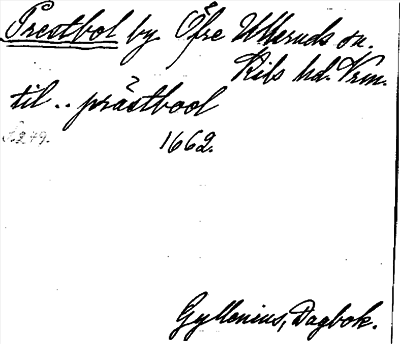 Prestbol by Öfre Ulleruds sn.
Kils hd. Vrm.
til .. prästbool
S. 249. 1662.
Gyllenius, Dagbok.